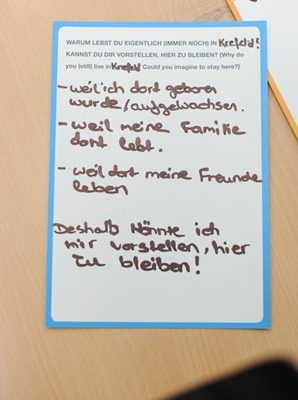 WARUM LEBST DU EIGENTLICH (IMMER NOCH) IN Krefeld?
KANNST DU DIR VORSTELLEN, HIER ZU BLEIBEN? (Why do
you (still) live in Krefeld Could you imagine to stay here?)
- weil ich dort geboren
wurde/aufgewachsen.
- weil meine Familie
dort lebt.
- weil dort meine Freunde
leben
Deshalb könnte ich
mir vorstellen, hier
zu bleiben!